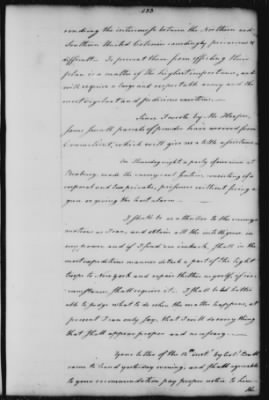 133
rendering the intercourse between the Northern and
Southern United Colonies exceedingly precarious &
difficult. To prevent them from effecting their
plan is a matter of the highest importance, and
will require a large and respectable army and the
most vigilant and judicious exertions.
Since I wrote by Mr. Hooper,
some small parcels of powder have arrived from
Connecticut, which will give us a little assistance.
On Thursday night a party of our men at
Roxbury made the enemy's out Sentries, consisting of a
corporal and two privates, prisoners without firing a
gun or giving the least alarm.
I shall be as attentive to the enemy's
motions as I can, and obtain all the intelligence in
my power, and if I find 'em embark, shall in the
most expeditious manner detach a part of the light
troops to New York and repair thither myself, if
circumstances shall require it. I shall be better
able to judge what to do when the matter happens, at
present I can only say, that I will do every thing
that shall appear proper and necessary.
Your letter of the 12th inst. by Col. Bull
came to hand yesterday evening, and shall agreeable
to your recommendation pay proper notice to him.
the